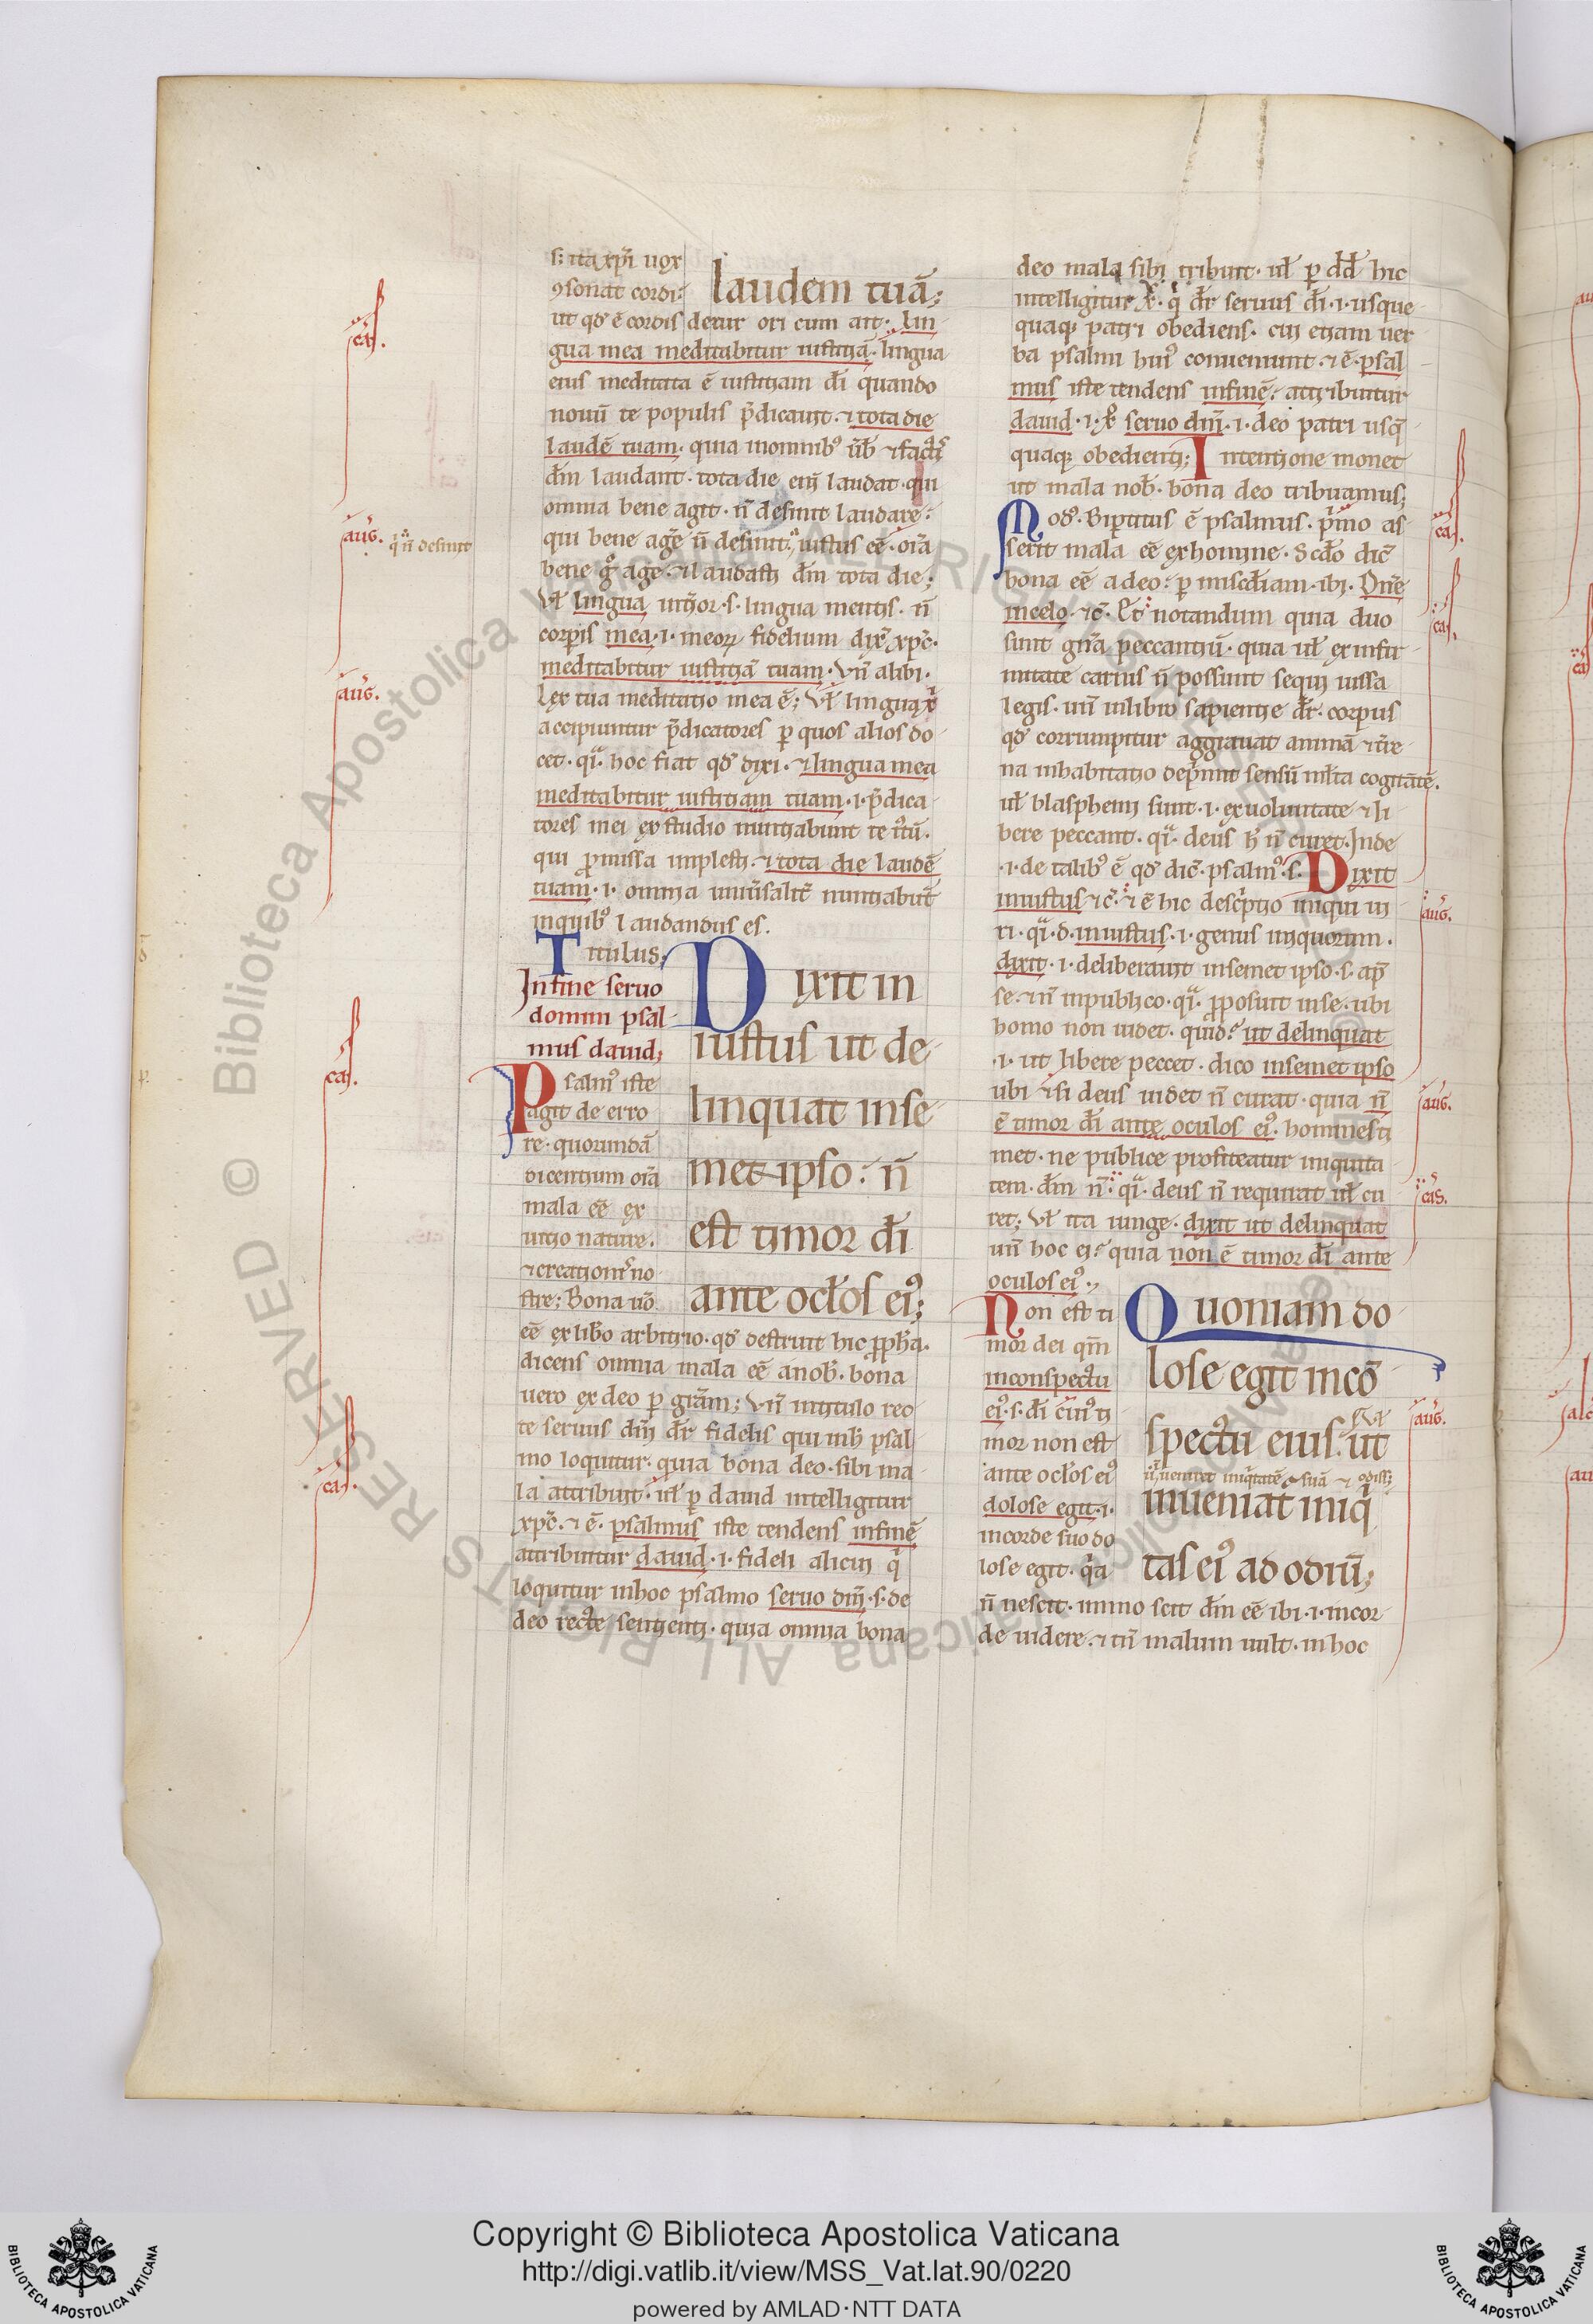 s. ita xp̄i uox
ꝯsonat cordi.
laudem tuā;
ut qđ ē cordis detur ori cum ait. lin
gua mea meditabitur iustitiā. lingua
eius meditata ē iustitiam dī quando
nouū te populis p̄dicant. ⁊ tota die
laudē tuam. quia in omnibꝰ
dn̄i laudant. tota die eni laudat. qui
omnia bene agit. n̄ desinit laudare.
qui bene agē n̄ desinit. iustus eē. oīa
bene gͦ age. ⁊ laudasti dm̄ tota die;
Vl̄ lingua. s. lingua mentis. n̄
corpis mea. i. meoꝝ fidelium dix̄ xp̄c.
meditabitur iustitiā tuam. Vn̄ alibi.
lex tua meditatio mea ē; Vl̄ lingua xp̄i
accipiuntur p̄dicatores ꝑ quos alios do
cet. q̄. hoc fiat qđ dixi. ⁊ lingua mea
meditabitur iustitiam tuam. i. p̄dica
tores mei ex studio nuntiabunt te
qui ꝓmissa implesti. ⁊ tota die laudē
tuam. i. omnia uniūsalit̄ nuntiabūt
in quibꝰ laudandus es.
Titulus;
In fine seruo
domini psal
mus dauid;
Dixit in
iustus ut de
linquat in se
met ipso: n̄
est timor dī
ante ocl̄os eiꝰ;
Psalmꝰ iste
agit de erro
re. quorundā
dicentium oīa
mala eē ex
uitio nature.
⁊ creationis no
stre; Bona uō
eē ex libō arbitrio. qđ destruit hic ꝓpha.
dicens omnia mala eē a nob. bona
uero ex deo ꝑ grām; Vn̄ in titulo rec
te seruus dn̄i dr̄ fidelis qui in h̄ psal
mo loquitur. quia bona deo. sibi ma
la attribuit. ul̄ ꝑ dauid intelligitur
xp̄c. ⁊ ē. psalmus iste tendens in finē
attribuitur dauid. i. fideli alicui q̄
loquitur in hoc psalmo seruo dn̄i. s. de
deo recte sentienti. quia omnia bona
deo mala sibi tribuit. ul̄ ꝑ dd̄ hic
intelligitur xp̄c. q̄ dr̄ seruus dī. i. usque
quaqꝫ patri obediens. cui etiam uer
ba psalmi huiꝰ conueniunt. ⁊ ē. psal
mus iste tendens in finē. attribuitur
dauid. i. xp̄o seruo dn̄i. i. deo patri usq̄
quaqꝫ obedienti; Intentione monet
ut mala nob. bona deo tribuamus;
Modꝰ. Bipertitus ē psalmus. p̄mo as
serit mala eē ex homine. Scd̄o dic̄
bona eē a deo. ꝑ miscd̄iam. ibi. Dn̄e
in celo. ⁊c̄. Et notandum quia duo
sunt gn̄a peccantiū. quia ul̄ ex infir
mitate carnis n̄ possunt sequi iussa
legis. un̄ in libro sapientie dr̄. corpus
qđ corrumpitur aggrauat animā ⁊ t̄re
na inhabitatio dep̄mit sensū ml̄ta cogitātē.
ul̄ blasphemi sunt. i. ex uoluntate ⁊ li
bere peccant. q̄. deus h̄ n̄ curet. Inde
.i. de talibꝰ ē qđ dic̄. psalmꝰ. s. Dixit
iniustus ⁊c̄. ⁊ ē hic desc̄ptio iniqui ui
ri. q̄. d. iniustus. i. genus iniquorum.
dixit. i. deliberauit in semet ipso. s. ap̄
se. ⁊ n̄ in publico. q̄. ꝓposuit in se. ubi
homo non uidet. quid? ut delinquat
.i. ut libere peccet. dico in semet ipso
ubi ⁊ si deus uidet n̄ curat. quia n̄
ē timor dī ante oculos eiꝰ. homines ti
met. ne publice profiteatur iniquita
tem. dm̄ n̄. q̄. deus n̄ requirat ul̄ cu
ret; Vl̄ ita iunge. dixit ut delinquat
un̄ hoc ei? quia non ē timor dī ante
oculos eiꝰ.
Non est ti
mor dei qm̄
in conspectu
eiꝰ. s. dī cuiꝰ ti
mor non est
ante ocl̄os eiꝰ
dolose egit. i.
in corde suo do
lose egit. q̄a
Quoniam do
lose egit in cō
spectu eius. ut
inueniat iniq̄
tas eiꝰ ad odiū;
n̄ nescit. immo scit dm̄ eē ibi. i. in cor
de uidere. ⁊ tn̄ malum uult. in hoc
cas.
aug. q̄ n̄ desinit
aug.
cas.
cas.
cas.
cas.
aug.
aug.
cas.
aug.
Copyright © Biblioteca Apostolica Vaticana
http://digi.vatlib.it/view/MSS_Vat.lat.90/0220
powered by AMLAD·NTT DATA
BIBLIOTECA APOSTOLICA VATICANA
BIBLIOTECA APOSTOLICA VATICANA